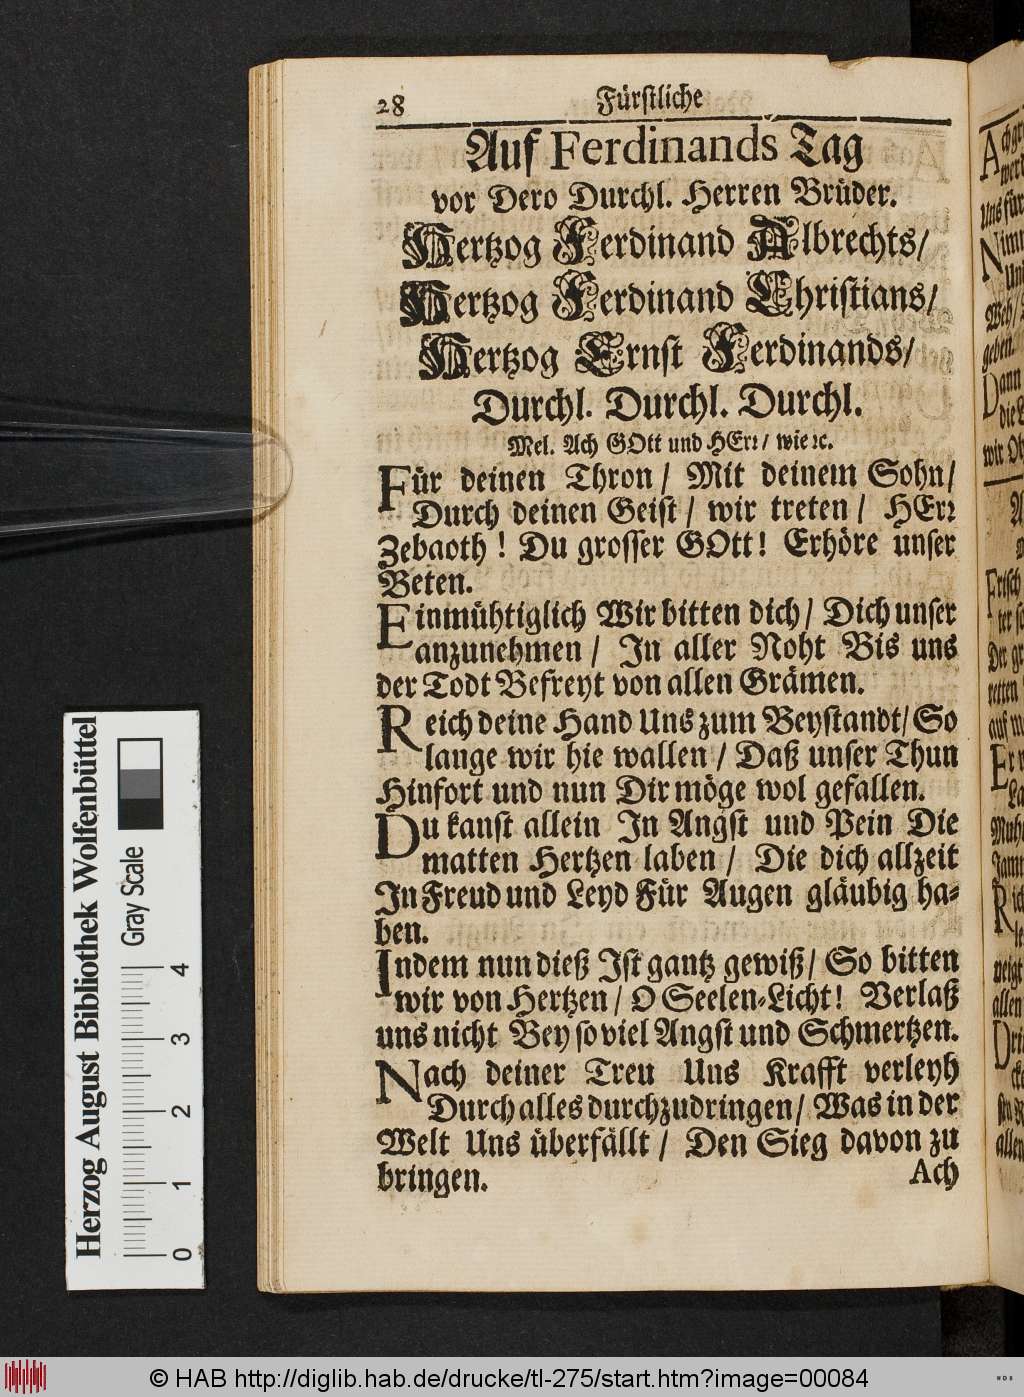 28 Fürstliche
Auf Ferdinands Tag
vor Dero Durchl. Herren Brüder.
Hertzog Ferdinand Albrechts/
Hertzog Ferdinand Christians/
Hertzog Ernst Ferdinands/
Durchl. Durchl. Durchl.
Mel. Ach GOtt und HErꝛ/ wie ꝛc.
Für deinen Thron / Mit deinem Sohn/
Durch deinen Geist / wir treten / HErꝛ
Zebaoth ! Du grosser GOtt! Erhöre unser
Beten.
Einmühtiglich Wir bitten dich/ Dich unser
anzunehmen / In aller Noht Bis uns
der Todt Befreyt von allen Grämen.
Reich deine Hand Uns zum Beystandt/ So
lange wir hie wallen / Daß unser Thun
Hinfort und nun Dir möge wol gefallen.
Du kanst allein In Angst und Pein Die
matten Hertzen laben / Die dich allzeit
In Freud und Leyd Für Augen gläubig ha-
ben.
Indem nun dieß Ist gantz gewiß/ So bitten
wir von Hertzen/ O Seelen-Licht! Verlaß
uns nicht Bey so viel Angst und Schmertzen.
Nach deiner Treu Uns Krafft verleyh
Durch alles durchzudringen/ Was in der
Welt Uns überfällt / Den Sieg davon zu
bringen. Ach
Herzog August Bibliothek Wolfenbüttel
Gray Scale
0 1 2 3 4
© HAB http://diglib.hab.de/drucke/tl-275/start.htm?image=00084